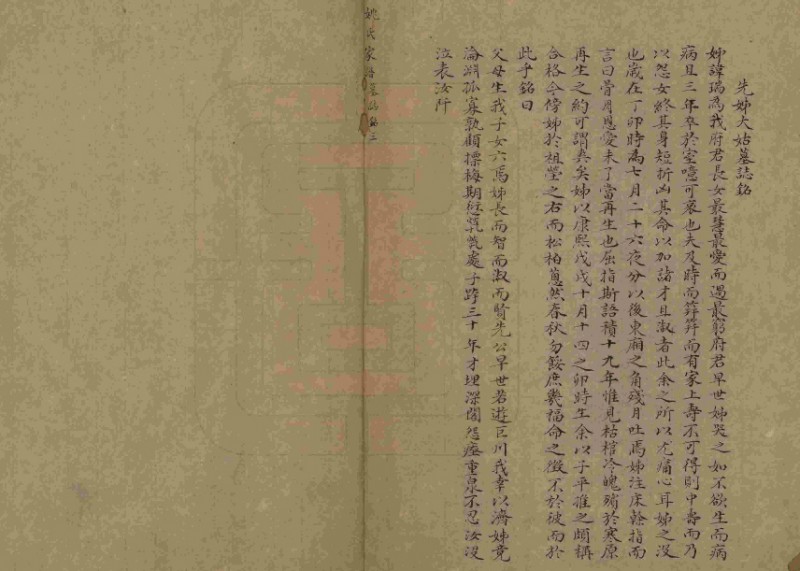 先姊大姑墓誌銘
姊諱瑞為我府君長女最慧最愛而遇最窮府君早世姊哭之如不欲生而病
病且三年卒於室噫可哀也夫及時而筓筓而有家上壽不可得則中壽而乃
以怨女終其身短折凶其命以加諸才且淑者此余之所以尤痛心耳姊之沒
也歲在丁卯時為七月二十六夜分以後東廂之角殘月吐焉姊注床幹指而
言曰骨月恩愛未了當再生也屈指斯語積十九年惟見枯棺冷魄殯於寒原
再生之約可謂矣姊以康熙戊戌十月十四之卯時生余以子平推之頗稱
合格今傍姊於祖塋之右而松柏蔥然春秋勿餒庶幾福命之徵不於彼而於
此乎銘曰
父母生我子女六焉姊長而智而淑而賢先公早世若遊巨川我幸以濟姊竟
淪湖孤寡孰顧摽梅期愆煢煢處子跨三十年才埋深閨怨瘞重泉不忍汝沒
泣表汝阡
姚氏家